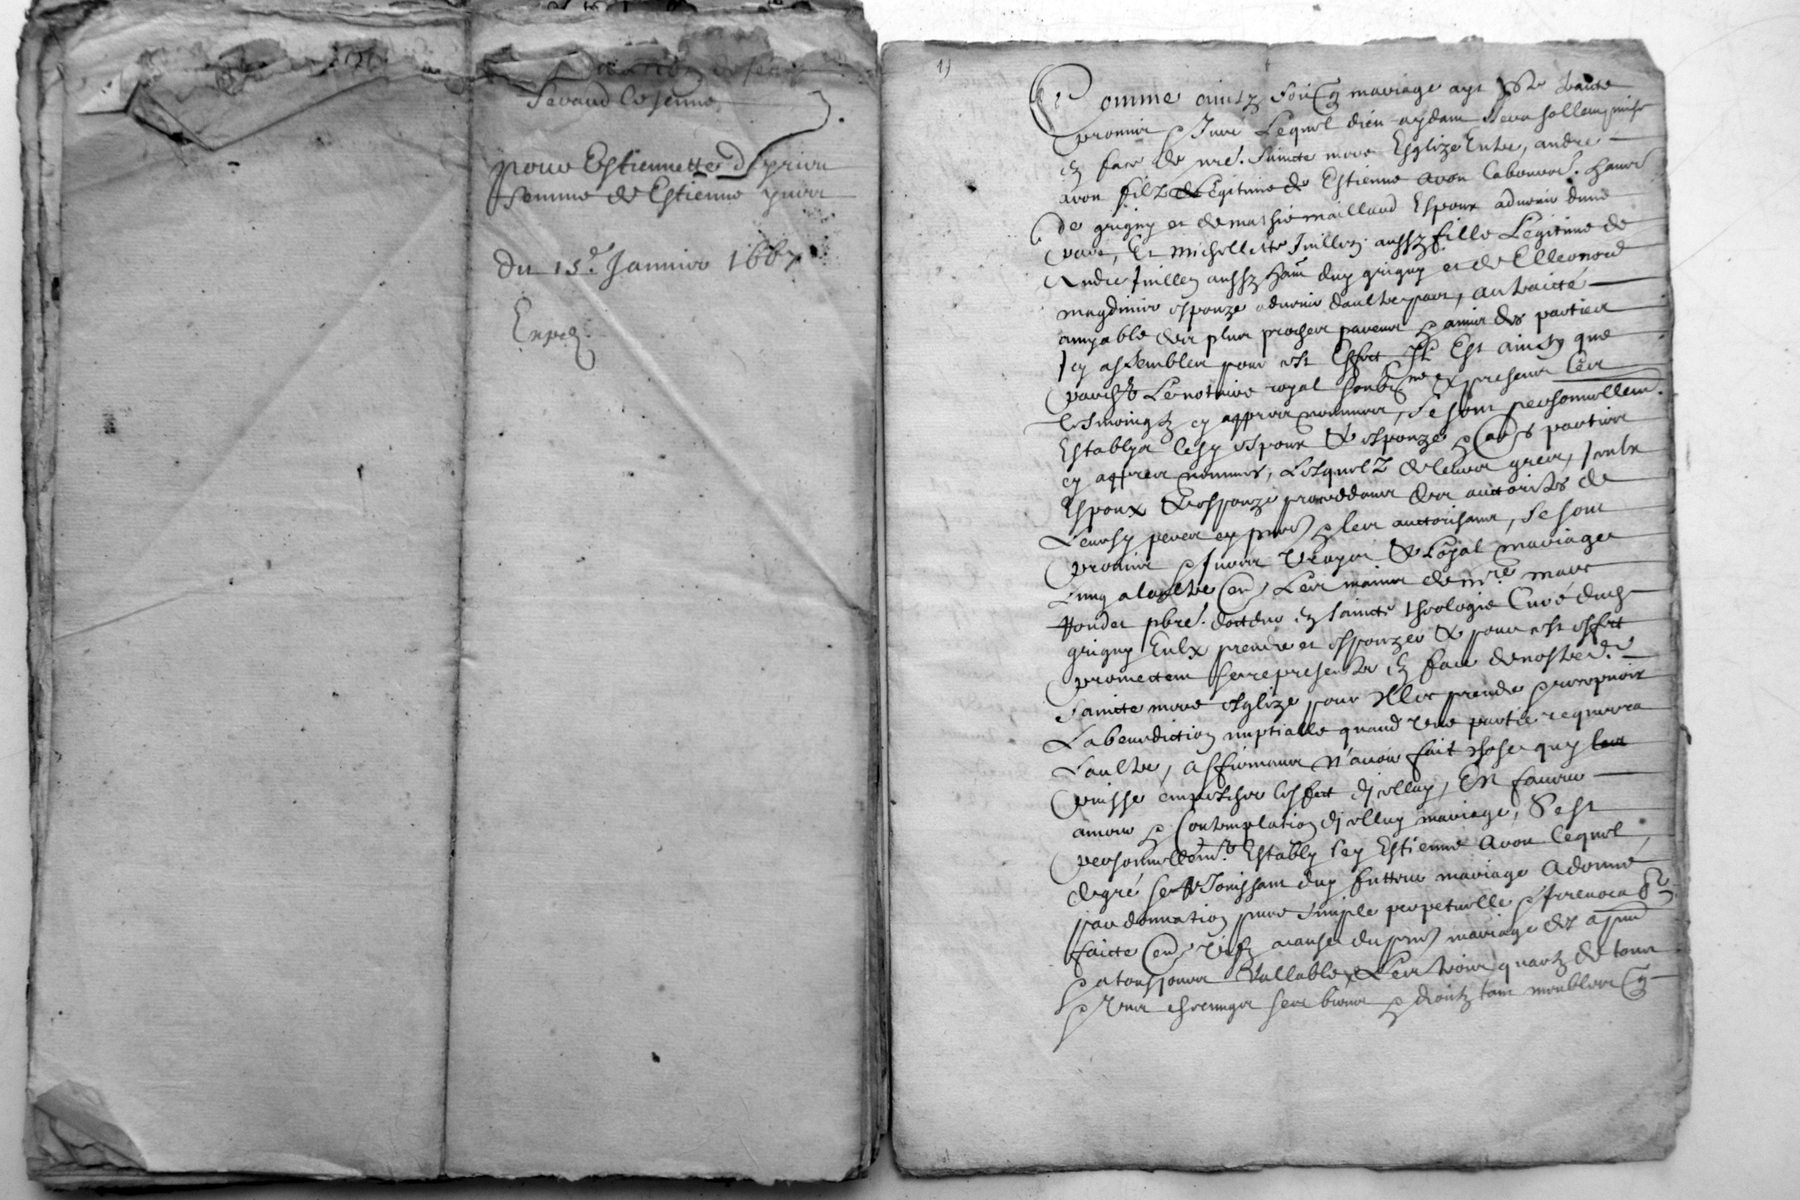 Donation de
Sevaud Cosjenne
pour Estiennette Dyprier
femme de Estienne prier
Du 15e Janvier 1667
Exped.
1)
Comme ainsy soit q mariage ayt esté traicté
promis & juré Lequel dieu aydant sera sollempnisé
en face de nre. saincte mere Esglize Entre, andré
avon filz Legitime de Estienne avon laboureur. hant
de grigny et de mathie maillaud Espoux advenir dune
part, Et Michellette Jullien aussy fille Legitime de
Andre Jullien aussy hant dud grigny et de Elleonord
magdinier espouze advenir daultre part, au traicté
amyable des plus proches parens & amis des parties
Icy assemblez pour cest Effect Il Est ainsy que
pardt Le notaire royal soubsne & presens les
tesmoingz cy appres nommez, se sont personnellemt
Establys lesd espoux & espouze & les parties
cy appres nommés, Lesquelz de leurs grez, scavoir
Espoux & Espouze proceddans des auctorités de
Leursd peres cy pnts & les auctorisant, se sont
promis & jurés vrayx & Loyal mariage
Lung a laultre Es mains de mre marc
pbre. docteur en saincte theologie Curé dudt
grigny Eulx prendre et espouzer & pour cest effect
promettent se representer en face de nostred.
saincte mere esglize pour Illec prendre & recepvoir
La benediction nuptialle quand lune partie requerra
Laultre, affirmant N'avoir fait chose quy
puisse empescher leffect dicelluy, En faveur
amour & Contemplation dicelluy mariage, S'est
personnellemt. Estably led Estienne Avon lequel
de gré se resjouissant dud futteur mariage A donné
par donnation pure simple perpetuelle & Irrevocable
faicte Entre vifz a cause du pnt mariage des a pnt
& a tousjours Vallable Les trois quartz de tous
& Uns chescungs ses biens & droictz tant meubles q